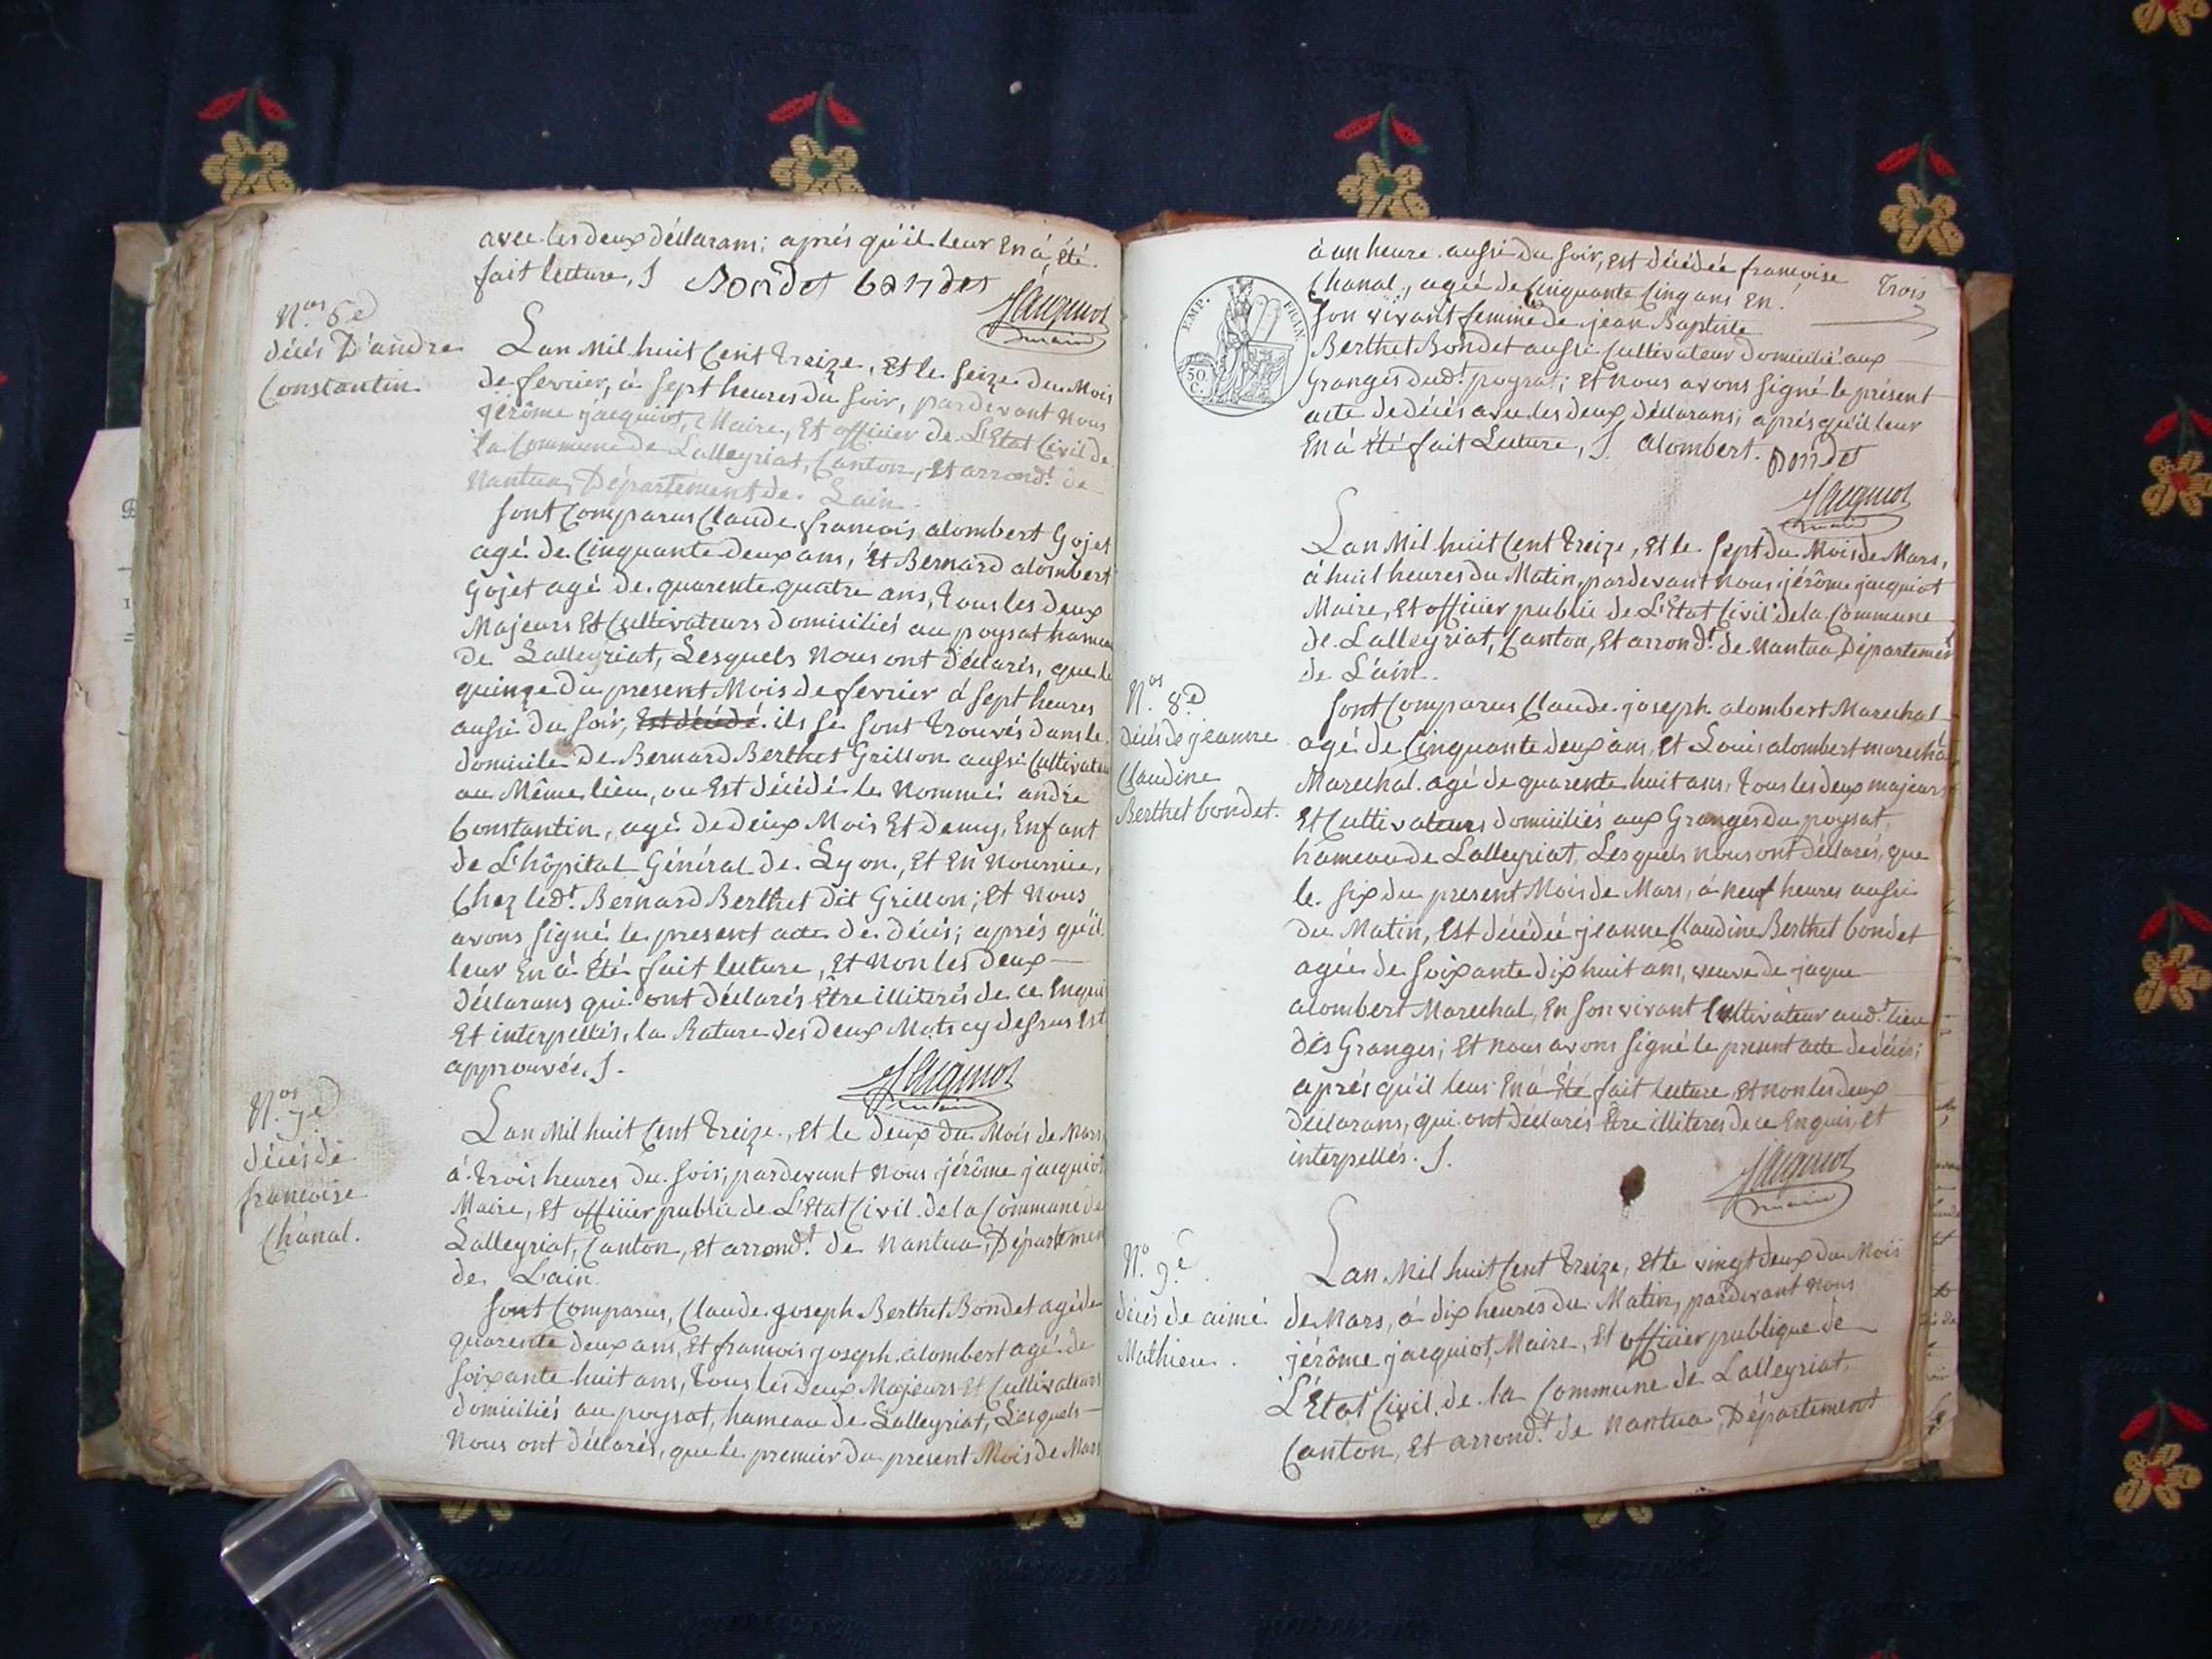 avec les deux déclarans; aprés qu'il leur En à été
fait lecture, J Bondet bondet
Jacquiot
maire
Nos. 6e
décés D'andre
Constantin.
Lan Mil huit Cent Treize, Et le Seize du Mois
de fevrier, à Sept heures du Soir, pardevant Nous
jérôme jacquiot, Maire, Et officier de L'Etat Civil de
la Commune de Lalleyriat, Canton, Et arrondt. de
Nantua, Département de Lain.
Sont Comparus Claude francois alombert Gojet
agé de Cinquante deux ans, Et Bernard alombert
gojet agé de quarente quatre ans, Tous les deux
Majeurs Et Cultivateurs domiciliés au poysat hameau
de Lalleyriat, Lesquels Nous ont déclarés, que le
quinze du present Mois de fevrier à Sept heures
aussi du Soir, Est décédé ils se Sont Trouvés dans le
domicile de Bernard Berthet Grillon aussi Cultivateur
au Même lieu, ou Est décédé le Nommé andré
Constantin, agé de deux Mois Et demy, Enfant
de L'hôpital Général de Lyon, Et En Nourrice,
Chez ledt. Bernard Berthet dit Grillon; Et Nous
avons Signé le present acte de décés; aprés qu'il
leur En à Eté fait lecture, Et Non les deux
déclarans qui ont déclarés Etre illiterés de ce Enquis
Et interpellés, la Rature des deux Mots cy dessus Est
approuvée. J.
Jacquiot
maire
Nos. 7e
décés de
francoise
Chanal.
Lan Mil huit Cent Treize, Et le deux du Mois de Mars
à Trois heures du Soir, pardevant Nous jérôme jacquiot
Maire, Et officier public de L'Etat Civil de la Commune de
Lalleyriat, Canton, Et arrondt. de Nantua, Départemen
de Lain.
Sont Comparus, Claude joseph Berthet Bondet agé de
quarente deux ans, Et francois joseph alombert agé de
Soixante huit ans, Tous les deux Majeurs Et Cultivateurs
domiciliés au poysat, hameau de Lalleyriat, Lesquels
Nous ont déclarés, que le premier du present Mois de Mars
à un heure aussi du Soir, Est décédée francoise
Trois
Chanal, agée de Cinquante Cinq ans En
Son vivant femme de jean Baptiste
Berthet Bondet aussi Cultivateur domicilié aux
Granges dudt. poysat; Et Nous avons Signé le présent
acte de décés avec les deux déclarans, aprés qu'il leur
En à été fait Lecture, J. alombert. Bondet
Jacquiot
maire
EMP. FRAN.
50 C.
Lan Mil huit Cent Treize, Et le Sept du Mois de Mars,
à huit heures du Matin, pardevant Nous jérôme jacquiot
Maire, Et officier public de L'Etat Civil de la Commune
de Lalleyriat, Canton, Et arrondt. de Nantua, Département
de L'ain.
Nos. 8e
décés de jeanne
Claudine
Berthet bondet.
Sont Comparus Claude joseph alombert Marechal
agé de Cinquante deux ans, Et Louis alombert marechal
Marechal agé de quarente huit ans, Tous les deux majeurs
Et Cultivateurs domiciliés aux Granges du poysat,
hameau de Lalleyriat, Lesquels Nous ont déclarés, que
le Six du present Mois de Mars, à Neuf heures aussi
du Matin, Est décédée jeanne Claudine Berthet bondet
agée de Soixante dix huit ans, veuve de jaque
alombert Marechal, En Son vivant Cultivateur audt. lieu
des Granges; Et Nous avons Signé le present acte de décés;
aprés qu'il leur En à Eté fait lecture, Et Non les deux
déclarans, qui ont déclarés Etre illiterés de ce Enquis, Et
interpellés. J.
Jacquiot
maire
No. 9e.
décés de aimé
Mathieu.
Lan Mil huit Cent Treize, Et le vingt deux du Mois
de Mars, à dix heures du Matin, pardevant Nous
jérôme jacquiot, Maire, Et officier publique de
L'Etat Civil de la Commune de Lalleyriat,
Canton, Et arrondt. de Nantua, Département